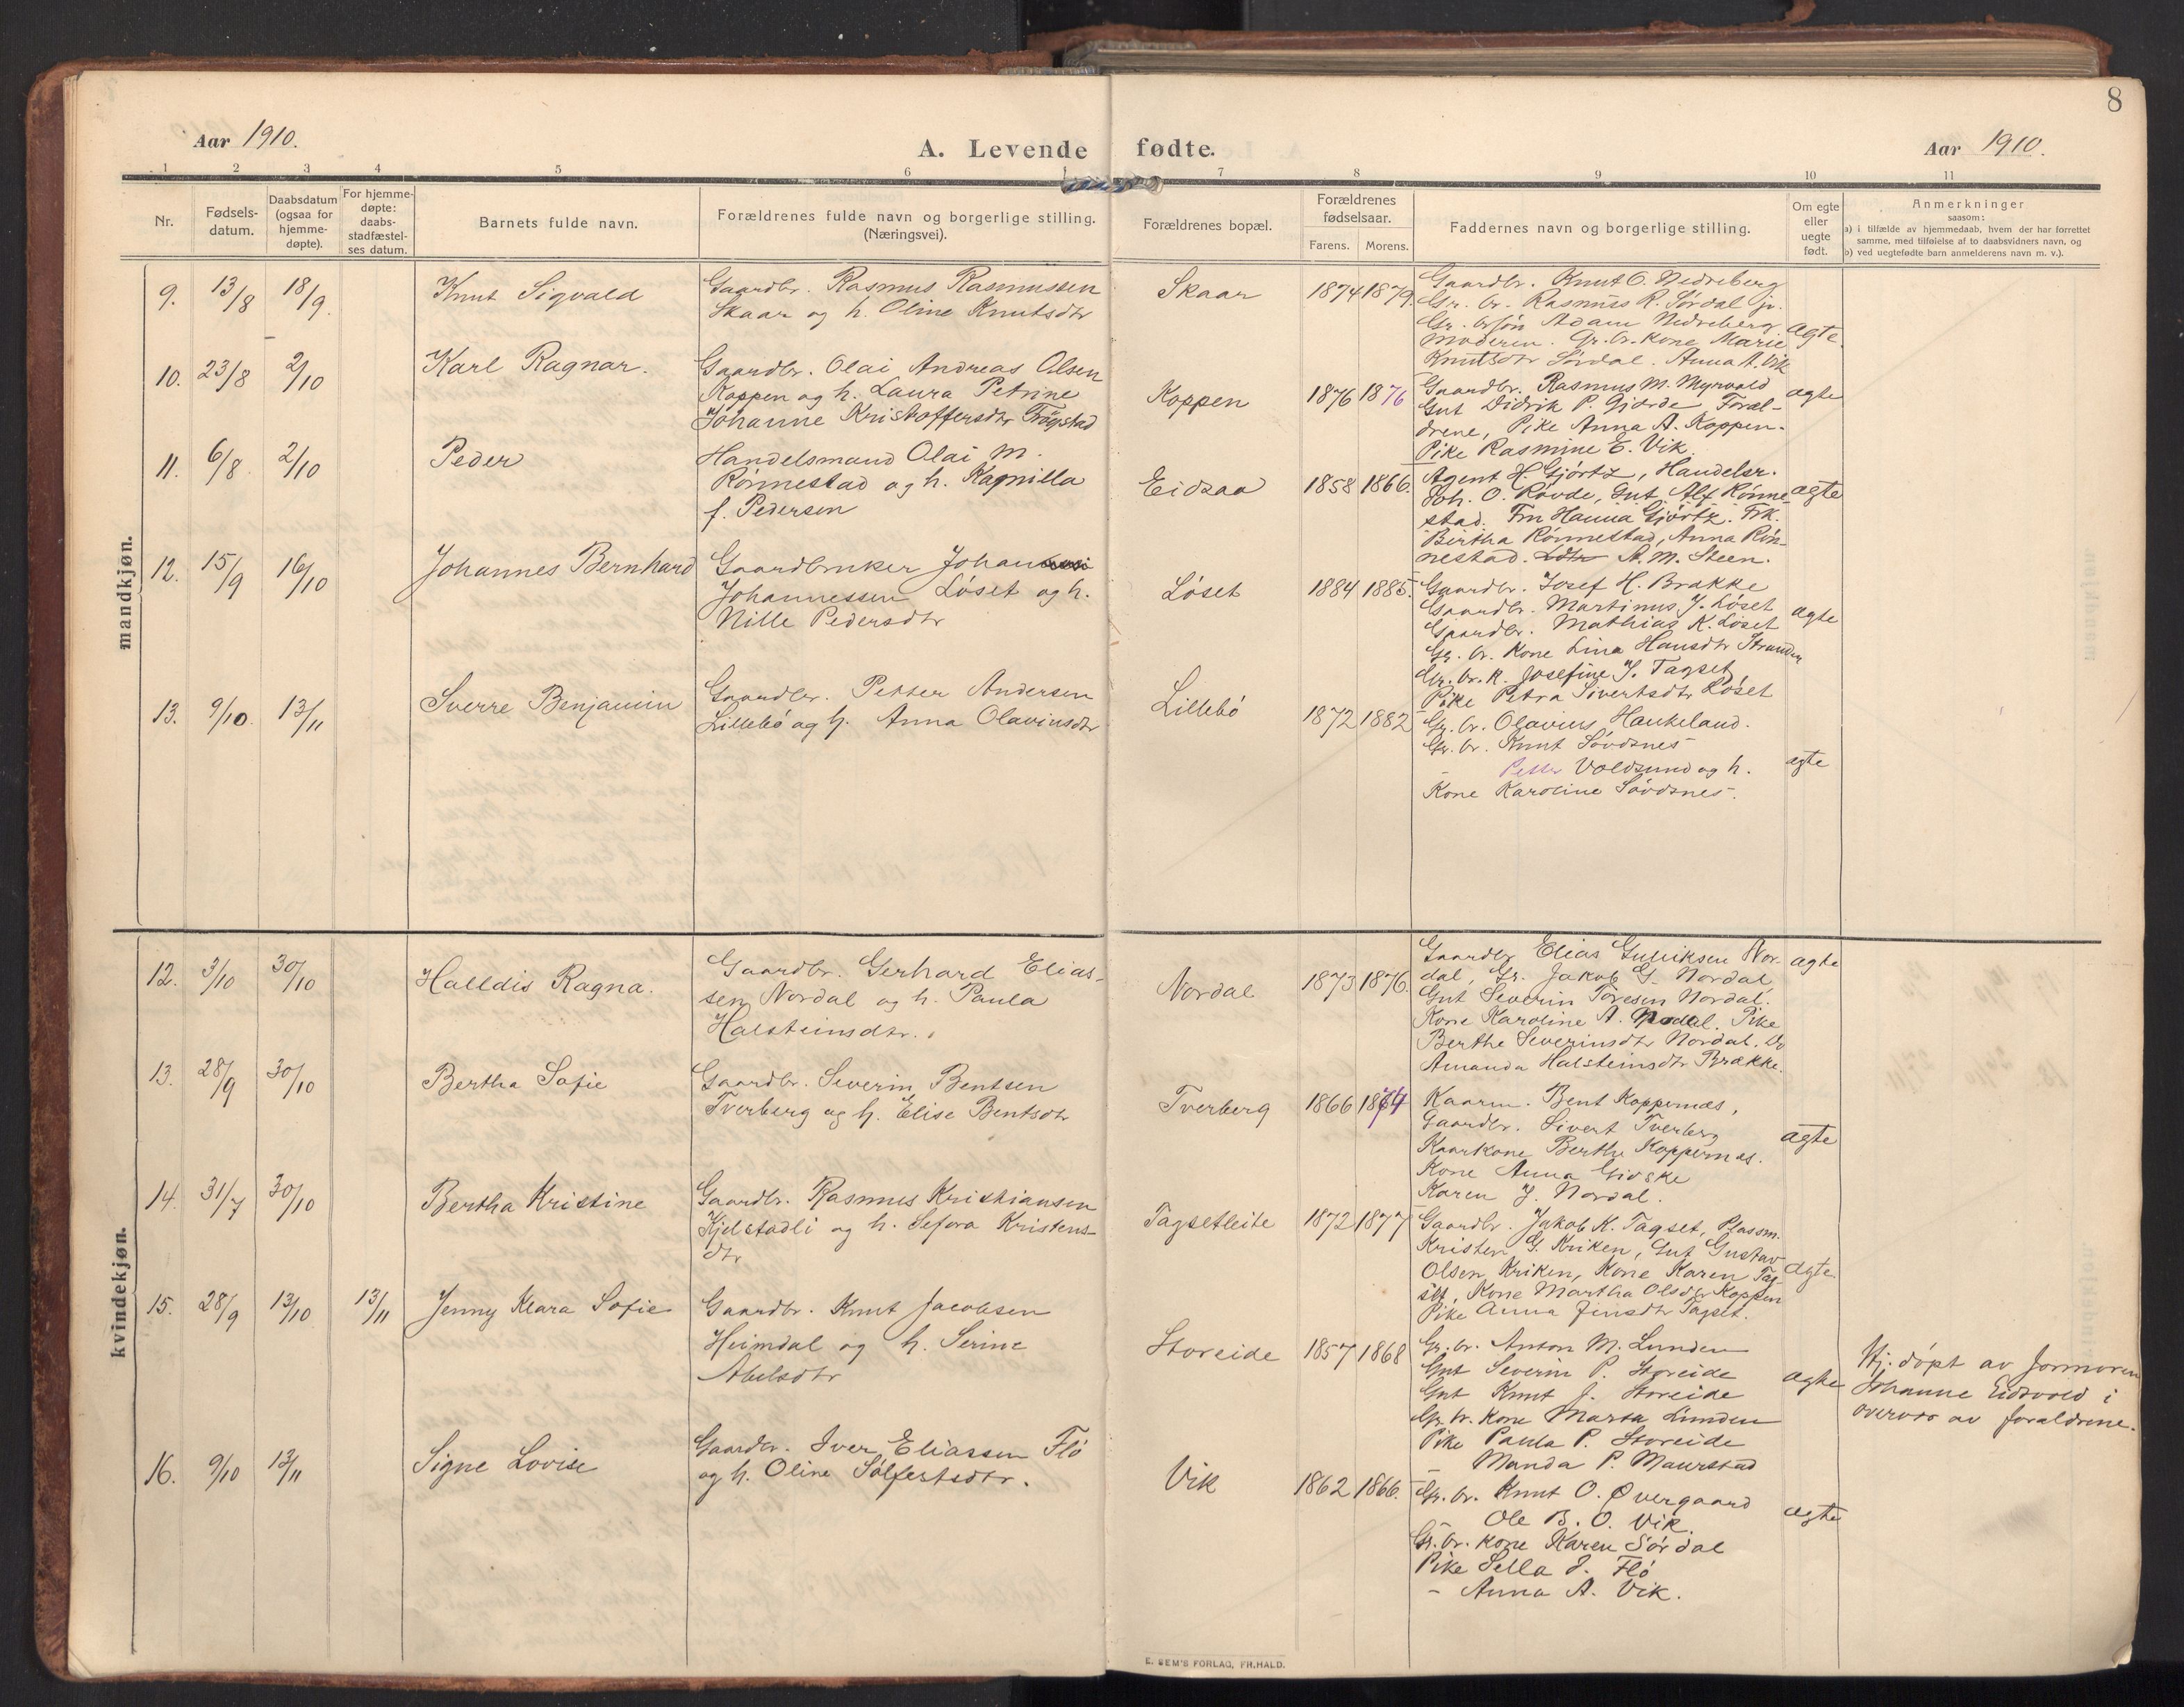 8
Aar 1910.
A. Levende fødte.
Aar 1910.
1 2 3 4 5 6 7 8 9 10 11
Nr.
Fødsels-
datum.
Daabsdatum
(ogsaa for
hjemme-
døpte).
For hjemme-
døpte:
daabs-
stadfæstel-
ses datum.
Barnets fulde navn.
Forældrenes fulde navn og borgerlige stilling.
(Næringsvei).
Forældrenes bopæl.
Forældrenes
fødselsaar.
Farens. Morens.
Faddernes navn og borgerlige stilling.
Om egte
eller
uegte
født.
Anmerkninger
saasom:
a) i tilfælde av hjemmedaab, hvem der har forrettet
samme, med tilføielse af to daabsvidners navn, og
b) ved uegtefødte barn anmelderens navn m. v.).
mandkjøn.
9. 13/8 18/9.
Knut Sigvald
Gaardbr. Rasmus Rasmussen
Skaar og h. Oline Knutsdtr
Skaar
1874 1879.
Gaardbr. Knut O. Nedreberg
Gr. br. Rasmus R. Sørdal jr.
Gr. brsøn Adam Nedreberg
Moderen. Gr. br. kone Marie
Knutsdtr Sørdal. Anna A. Vik
ægte.
10. 23/8 2/10
Karl Ragnar.
Gaardbr. Olai Andreas Olsen
Koppen og h. Laura Petrine
Johanne Kristoffersdtr Frøystad
Koppen
1876 1876
Gaardbr. Rasmus M. Myrvold
Gut Didrik P. Gjørde Foræl-
drene, Pike Anna A. Koppen.
Pike Rasmine E. Vik.
ægte
11. 6/8 2/10
Peder
Handelsmand Olai M.
Rønnestad og h. Ragnilla
f. Pedersen
Eidsaa
1858 1866.
Agent H. Gjørtz, Handelsr.
Joh. O. Røvde, Gut Alf Rønne-
stad. Fru Hanna Gjørtz. Frk.
Birtha Rønnestad, Anna Røn-
nestad. A. M. Steen.
ægte
12. 15/9 16/10
Johannes Bernhard
Gaardbruker Johan
Johannessen Løset og h.
Nille Pedersdtr
Løset
1884 1885.
Gaardbr. Josef H. Brakke
Gaardbr. Martinus J. Løset
Gaardbr. Mathias K. Løset
Gr. br. Kone Lina Hansdtr Stranden
Gr. br. K. Josefine J. Tagset
Pike Petra Sivertsdtr Løset
ægte
13. 9/10. 13/11
Sverre Benjamin
Gaardbr. Petter Andersen
Lillebø og h. Anna Olavinsdtr
Lillebø
1872 1882
Gr. br. Olavius Haukeland.
Gr. br. Knut Søvdsnes
– Petter Voldsund og h.
Kone Karoline Søvdsnes.
ægte
kvindekjøn.
12. 3/10 30/10
Halldis Ragna.
Gaardbr. Gerhard Elias-
sen Nordal og h. Paula
Halsteinsdtr.
Nordal
1873 1876.
Gaardbr Elias Gulliksen Nor-
dal, Gr. Jakob G. Nordal
Gut Severin Toresen Nordal.
Kone Karoline A. Nordal. Pike
Berthe Severinsdtr Nordal. Do
Amanda Halsteinsdtr Brække.
ægte
13. 28/9 30/10
Bertha Sofie
Gaardbr. Severin Bentsen
Tverberg og h. Elise Bentsdtr
Tverberg
1866 1874
Kaarm. Bent Koppernæs,
Gaardbr. Sivert Tverberg
Kaarkone Berthe Koppernæs.
Kone Anna Givske
Karen J. Nordal.
ægte
14. 31/7 30/10
Bertha Kristine
Gaardbr. Rasmus Kristiansen
Kjelstadli og h. Sefora Kristens-
dtr
Tagsetleite
1872 1877
Gaardbr. Jakob K. Tagset, Plassm.
Kristen G. Kriken, Gut Gustav
Olsen Kriken, Kone Karen Tag-
set, Kone Martha Olsdtr Koppen
Pike Anna Jensdtr Tagset.
ægte
15. 28/9 13/10 13/11
Jenny Klara Sofie
Gaardbr. Knut Jacobsen
Heimdal og h. Serine
Abelsdtr
Storeide
1857 1868
Gr. br. Anton M. Lunden
Gut Severin P. Storeide
Gut Knut J. Storeide
Gr. br. Kone Marta Lunden
Pike Paula P. Storeide
– Manda P. Maurstad
ægte
Hj. døpt av Jormoren
Johanne Eidsvold i
overvær av forældrene.
16. 9/10 13/11
Signe Lovise
Gaardbr. Iver Eliassen Flø
og h. Oline Sølfestsdtr.
Vik
1862 1866.
Gr. br. Knut O. Øvergaard
– Ole B. O. Vik.
Gr. br. kone Karen Sørdal
Pike Sella J. Flø
– Anna A. Vik.
ægte
E. SEM'S FORLAG, FR.HALD.